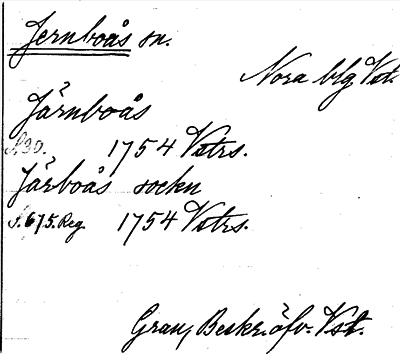 Jernboås sn.
Nora blg Vst.
Järnboås
S. 90. 1754 Vstrs.
Järboås sockn
S. 675. Reg. 1754 Vstrs.
Grau, Beskr. öfv. Vst.